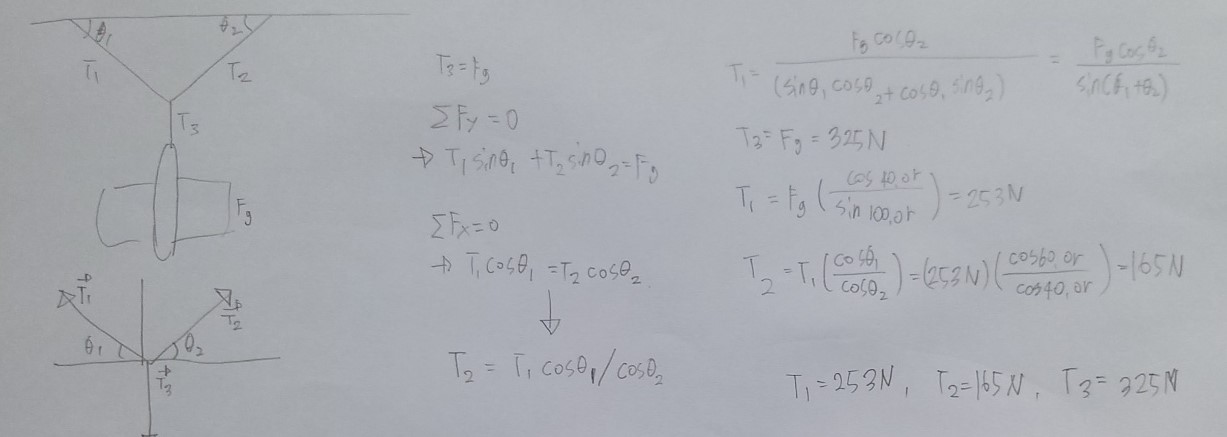 θ₁ θ₂
T₁ T₂
T₃
F₉
T⃗₁
T⃗₂
θ₁ θ₂
T⃗₃
T₃ = F₉
ΣFy = 0
→ T₁ sinθ₁ + T₂ sinθ₂ = F₉
ΣFx = 0
→ T₁ cosθ₁ = T₂ cosθ₂
T₂ = T₁ cosθ₁ / cosθ₂
T₁ = F₉ cosθ₂ / (sinθ₁ cosθ₂ + cosθ₁ sinθ₂) = F₉ cosθ₂ / sin(θ₁ + θ₂)
T₃ = F₉ = 325 N
T₁ = F₉ (cos 40,0r / sin 100,0r) = 253 N
T₂ = T₁ (cosθ₁ / cosθ₂) = (253 N) (cos 60,0r / cos 40,0r) = 165 N
T₁ = 253 N, T₂ = 165 N, T₃ = 325 N